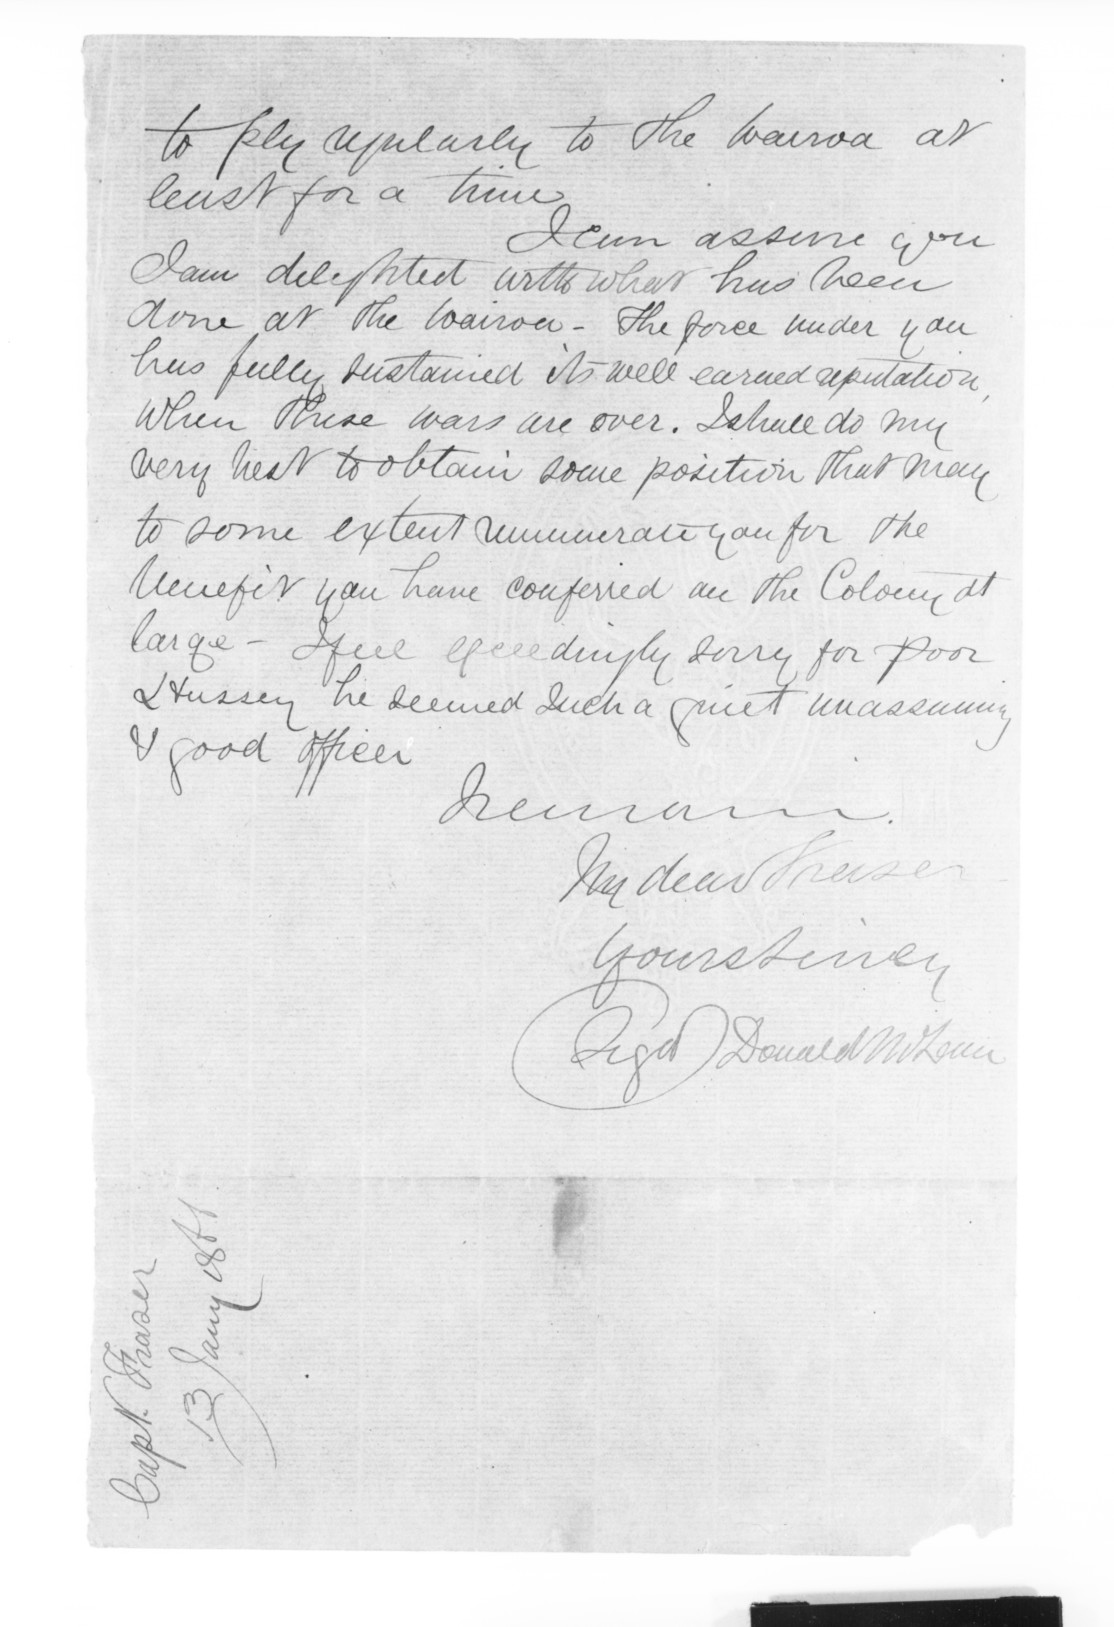 to ply regularly to the Wairoa at
least for a time
I can assure you
I am delighted with what has been
done at the Wairoa - The force under you
has fully sustained its well earned reputation,
when these wars are over. I shall do my
very best to obtain some position that may
to some extent remunerate you for the
benefit you have conferred on the Colony at
large - I feel exceedingly sorry for poor
Hussey he seemed such a quiet unassuming
& good officer
I remain.
My dear Fraser
Yours sincely
Sigd Donald McLean
Capt. Fraser
13 Jany